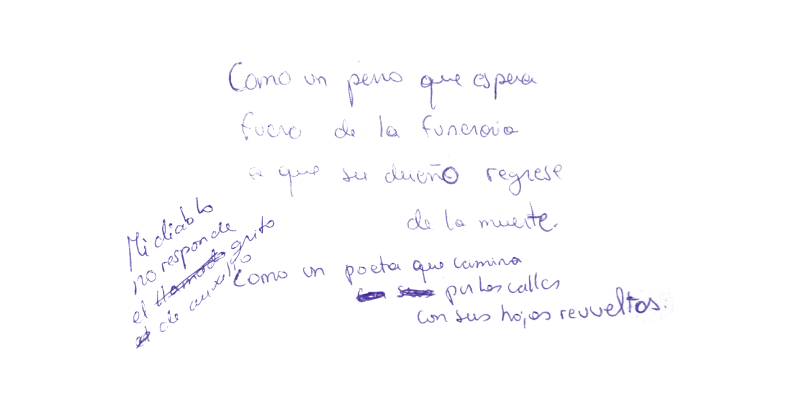 Como un perro que espera
fuera de la funeraria
a que su dueño regrese
de la muerte.
Como un poeta que camina
por las calles
con sus hojas revueltas.
Mi diablo
no responde
el llamado grito
de auxilio